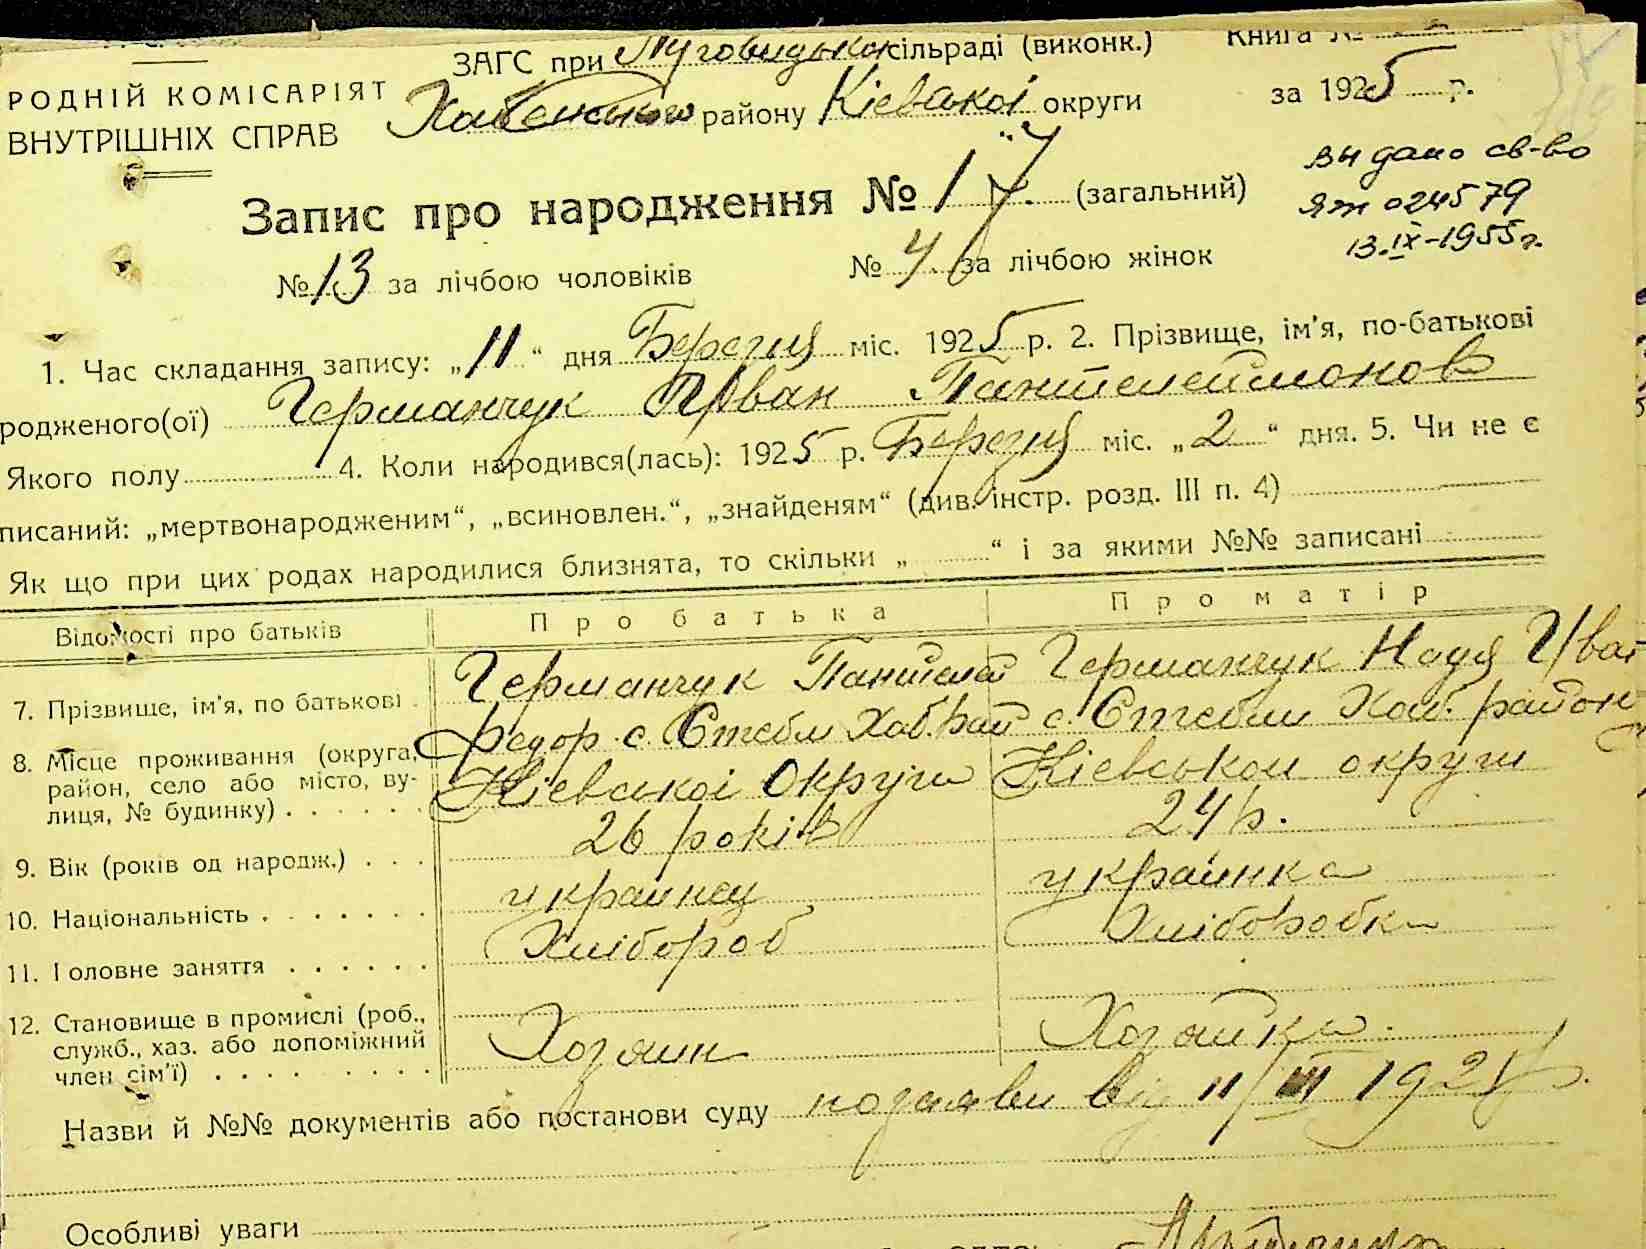 ЗАГС при Луговицькій сільраді (виконк.) Книга №
РОДНІЙ КОМІСАРІЯТ
ВНУТРІШНІХ СПРАВ
Хабенського району Кіевскої округи за 1925 р.
Видано св-во
ЯЖ 024579
13.IX-1955г.
Запис про народження № 17. (загальний)
№ 13 за лічбою чоловіків № 4. за лічбою жінок
1. Час складання запису: „11“ дня Березня міс. 1925 р. 2. Прізвище, ім'я, по-батькові
родженого(ої) Германчук Иван Пантелеймонов
Якого полу 4. Коли народився(лась): 1925 р. Березня міс. „2“ дня. 5. Чи не є
писаний: „мертвонародженим“, „всиновлен.“, „знайденям“ (див. інстр. розд. III п. 4)
Як що при цих родах народилися близнята, то скільки „ “ і за якими №№ записані
Відомості про батьків Про батька Про матір
7. Прізвище, ім'я, по батькові Германчук Пантелей Германчук Надя Иван
8. Місце проживання (округа, район, село або місто, вулиця, № будинку)
Федор с. Стебли Хаб. рай с. Стебли Хаб. району
Кіевскої Округи Кіевськои округи
9. Вік (років од народж.) 26 років 24 р.
10. Національність украинец украинка
11. Головне заняття Хлібороб Хліборобка
12. Становище в промислі (роб.,
служб., хаз. або допоміжний
член сім'ї) Хозяин Хозяйка
Назви й №№ документів або постанови суду по заяви від 11/III 1925 р.
Особливі уваги